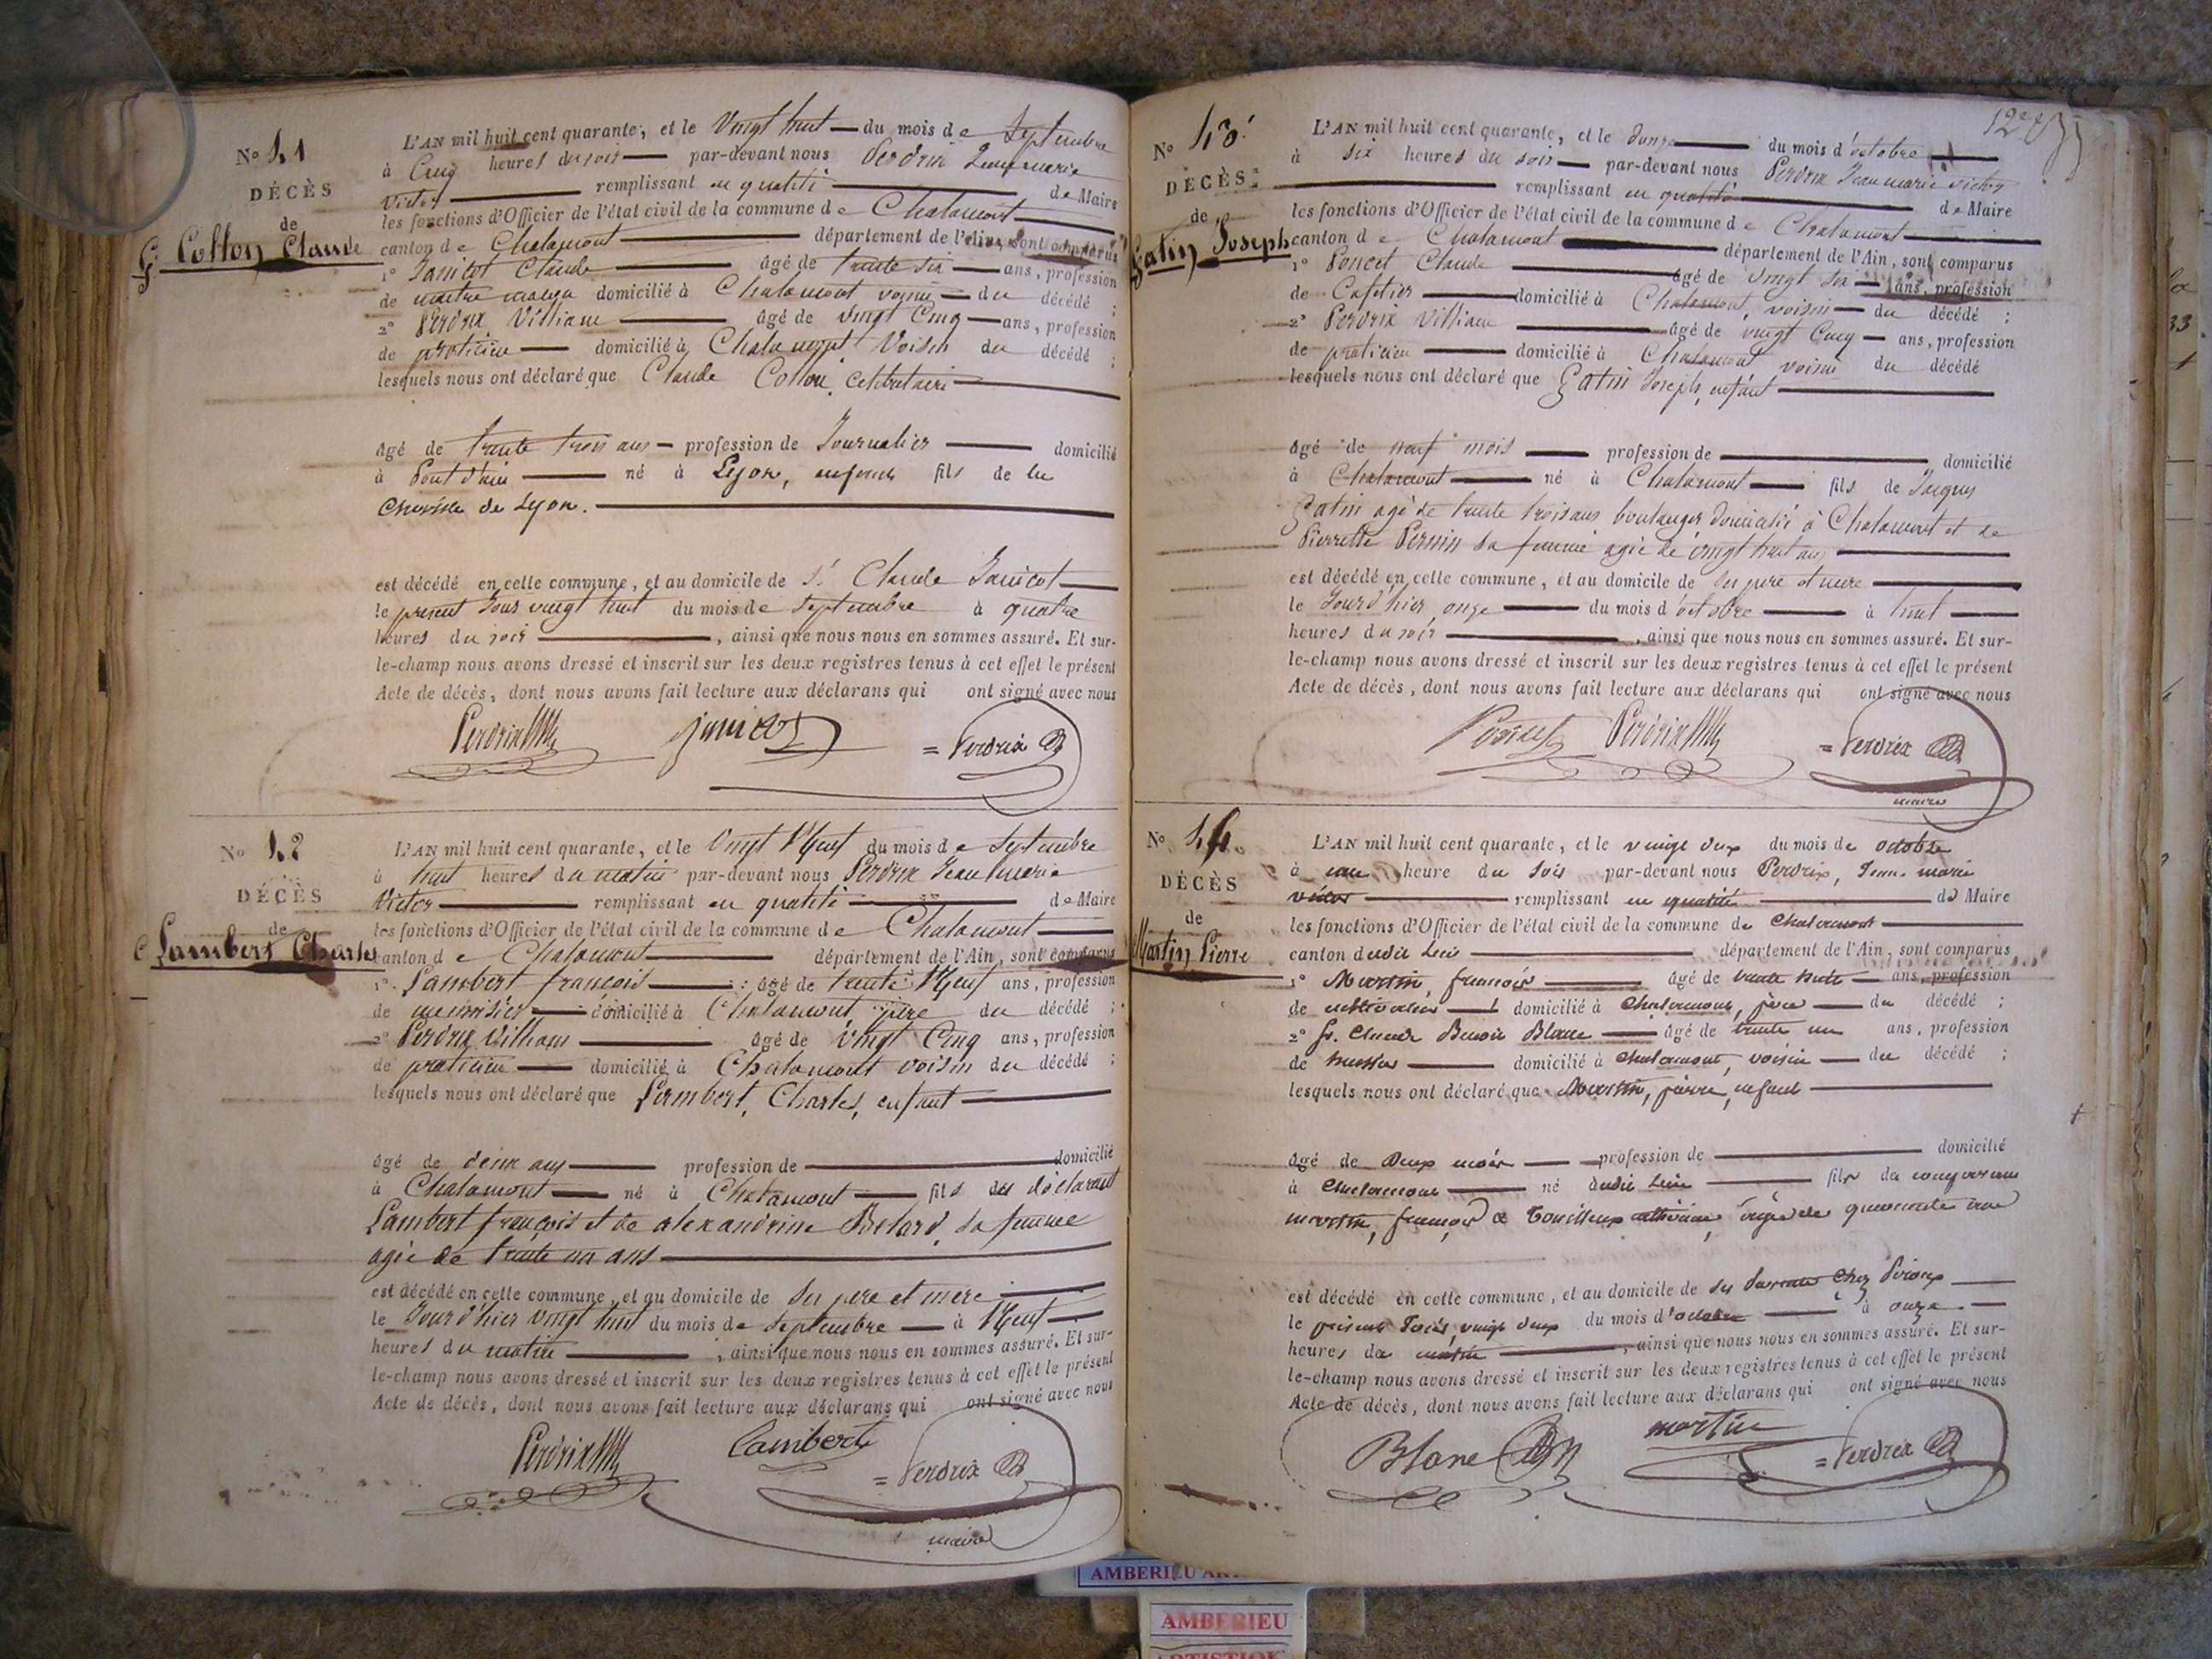 No 41
DÉCÈS
de
Cotton Claude
L'AN mil huit cent quarante, et le Vingt huit du mois de Septembre
à Cinq heures du soir par-devant nous Perdrix Jean marie
Victor remplissant en qualité de Maire
les fonctions d'Officier de l'état civil de la commune de Chalamont
canton de Chalamont département de l'Ain, sont comparus
1° Janicot Claude âgé de trente six ans, profession
de maitre maçon domicilié à Chalamont voisin du décédé ;
2° Perdrix William âgé de vingt Cinq ans, profession
de praticien domicilié à Chalamont Voisin du décédé ;
lesquels nous ont déclaré que Claude Cotton, Celibataire
âgé de trente trois ans profession de Journalier domicilié
à Pont d'ain né à Lyon, enfant fils de la
Charité de Lyon.
est décédé en cette commune, et au domicile de Sr Claude Janicot
le présent Jour vingt huit du mois de Septembre à quatre
heures du soir, ainsi que nous nous en sommes assuré. Et sur-
le-champ nous avons dressé et inscrit sur les deux registres tenus à cet effet le présent
Acte de décès, dont nous avons fait lecture aux déclarans qui ont signé avec nous
Perdrix janicot = Perdrix
No 42
DÉCÈS
de
Lambert Charles
L'AN mil huit cent quarante, et le Vingt Neuf du mois de Septembre
à huit heures du matin par-devant nous Perdrix Jean Marie
Victor remplissant en qualité de Maire
les fonctions d'Officier de l'état civil de la commune de Chalamont
canton de Chalamont département de l'Ain, sont comparus
1° Lambert françois âgé de trente Neuf ans, profession
de menuisier domicilié à Chalamont père du décédé ;
2° Perdrix William âgé de Vingt Cinq ans, profession
de praticien domicilié à Chalamont voisin du décédé ;
lesquels nous ont déclaré que Lambert, Charles, enfant
âgé de deux ans profession de domicilié
à Chalamont né à Chalamont fils du déclarant
Lambert françois et de alexandrine sa femme
agée de trente un ans
est décédé en cette commune, et au domicile de ses pere et mere
le Jour d'hier vingt huit du mois de Septembre à Neuf
heures du matin, ainsi que nous nous en sommes assuré. Et sur-
le-champ nous avons dressé et inscrit sur les deux registres tenus à cet effet le présent
Acte de décès, dont nous avons fait lecture aux déclarans qui ont signé avec nous
Perdrix Lambert = Perdrix
maire
No 43
DÉCÈS
de
Gatin Joseph
L'AN mil huit cent quarante, et le douze du mois d'octobre
à six heures du soir par-devant nous Perdrix Jean marie victor
remplissant en qualité de Maire
les fonctions d'Officier de l'état civil de la commune de Chalamont
canton de Chalamont département de l'Ain, sont comparus
1° Poncet Claude âgé de vingt six ans, profession
de Cafetier domicilié à Chalamont, voisin du décédé ;
2° Perdrix William âgé de vingt Cinq ans, profession
de praticien domicilié à Chalamont voisin du décédé
lesquels nous ont déclaré que Gatin Joseph, enfant
âgé de neuf mois profession de domicilié
à Chalamont né à Chalamont fils de Jacques
Gatin agé de trente trois ans boulanger domicilié à Chalamont et de
Pierrette Pernin sa femme agée de vingt huit ans
est décédé en cette commune, et au domicile de ses pere et mere
le Jour d'hier onze du mois d'octobre à huit
heures du soir, ainsi que nous nous en sommes assuré. Et sur-
le-champ nous avons dressé et inscrit sur les deux registres tenus à cet effet le présent
Acte de décès, dont nous avons fait lecture aux déclarans qui ont signé avec nous
Poncet Perdrix = Perdrix
maire
No 44.
DÉCÈS
de
Martin Pierre
L'AN mil huit cent quarante, et le vingt deux du mois de octobre
à une heure du soir par-devant nous Perdrix, Jean marie
victor remplissant en qualité de Maire
les fonctions d'Officier de l'état civil de la commune de Chalamont
canton dudit lieu département de l'Ain, sont comparus
1° Martin, françois âgé de trente huit ans, profession
de cultivateur domicilié à Chalamont, père du décédé ;
2° Sr. Claude Benoit Blanc âgé de trente un ans, profession
de huissier domicilié à Chalamont, voisin du décédé ;
lesquels nous ont déclaré que Martin, pierre, enfant
âgé de Deux mois profession de domicilié
à Chalamont né audit lieu fils du comparant
martin, françois & agée de quarante un
est décédé en cette commune, et au domicile de ses Parents Chez
le présent Jour, vingt deux du mois d'octobre à onze
heures du matin, ainsi que nous nous en sommes assuré. Et sur-
le-champ nous avons dressé et inscrit sur les deux registres tenus à cet effet le présent
Acte de décès, dont nous avons fait lecture aux déclarans qui ont signé avec nous
Blanc martin = Perdrix
AMBERIEU